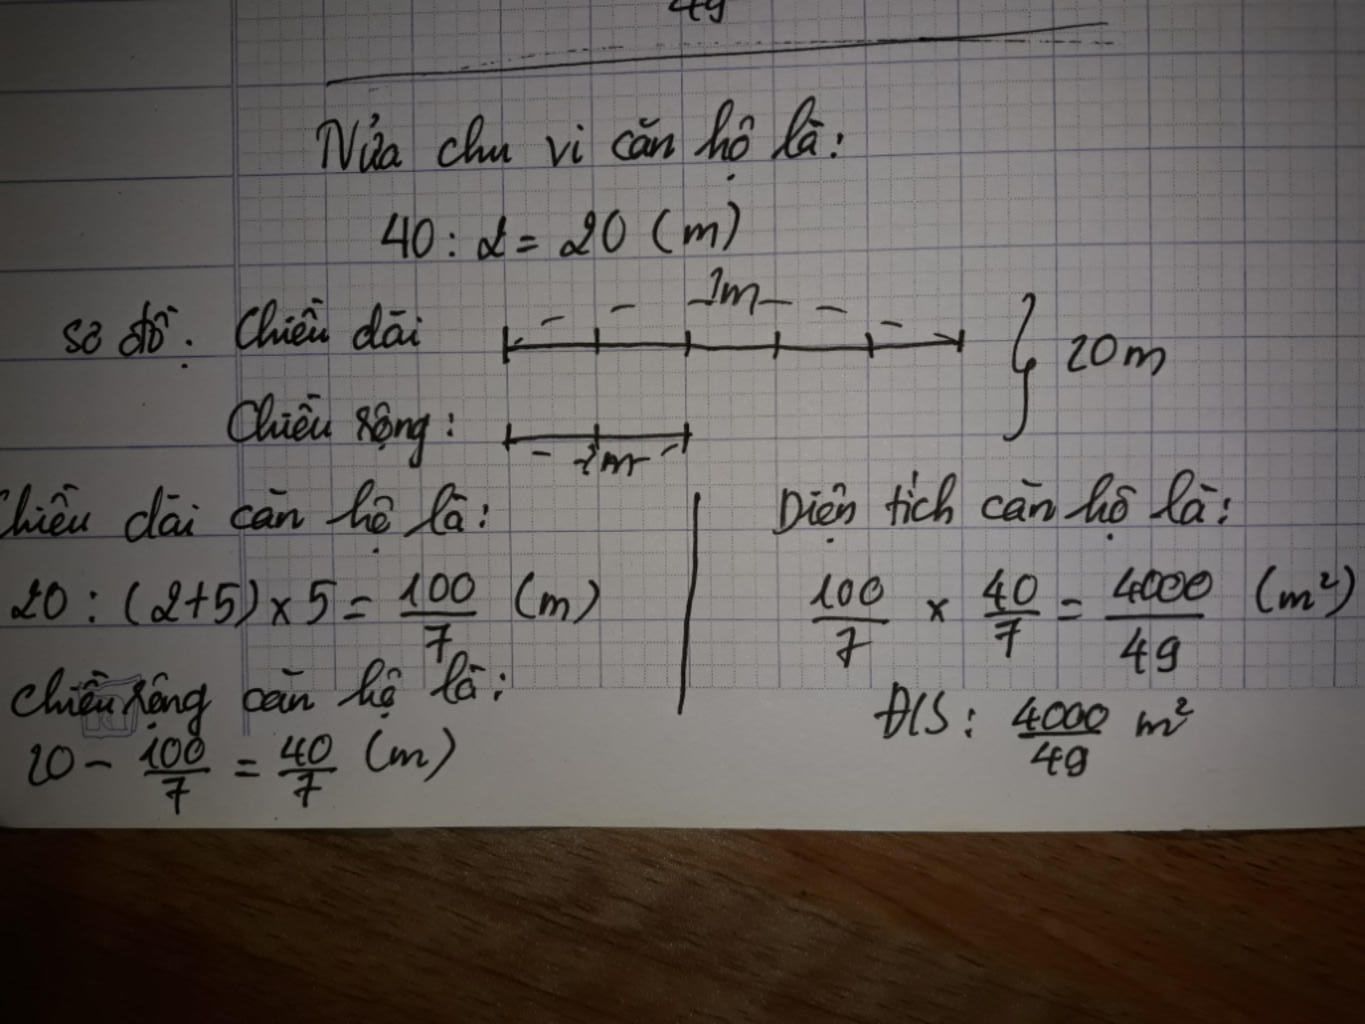 49
Nửa chu vi căn hộ là:
40 : 2 = 20 (m)
?m
Sơ đồ: Chiều dài
20 m
Chiều rộng:
?m
Chiều dài căn hộ là:
20 : (2+5) x 5 = 100/7 (m)
Chiều rộng căn hộ là:
20 - 100/7 = 40/7 (m)
Diện tích căn hộ là:
100/7 x 40/7 = 4000/49 (m²)
Đ/S: 4000/49 m²